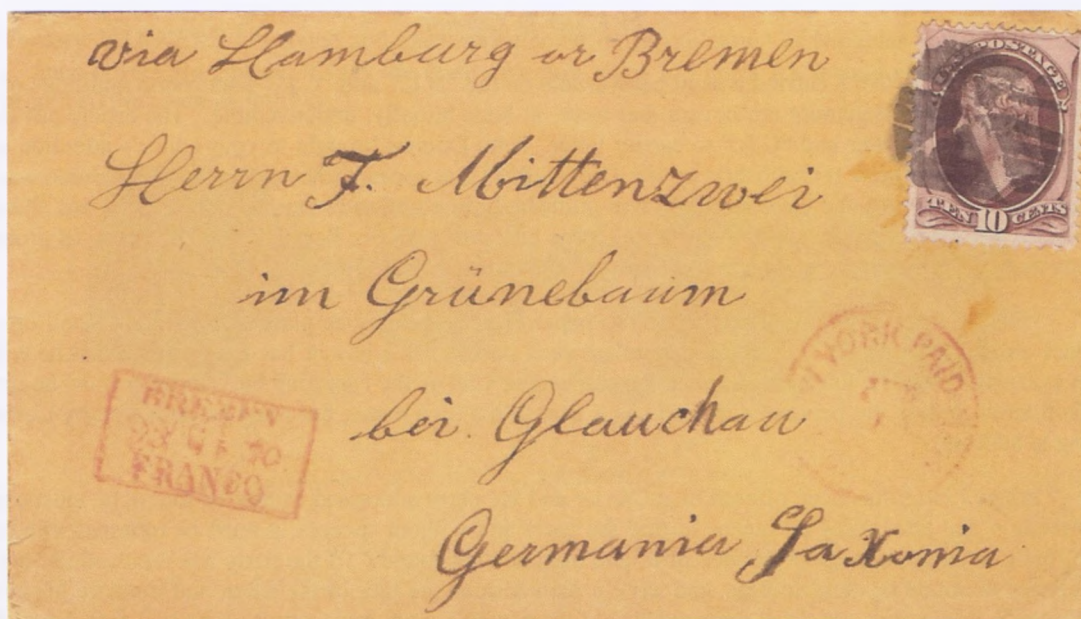 via Hamburg or Bremen
U.S. POSTAGE
TEN 10 CENTS
Herrn F. Mittenzwei
im Grünebaum
bei Glauchau
Germania Saxonia
YORK PAID
BREMEN
FRANCO